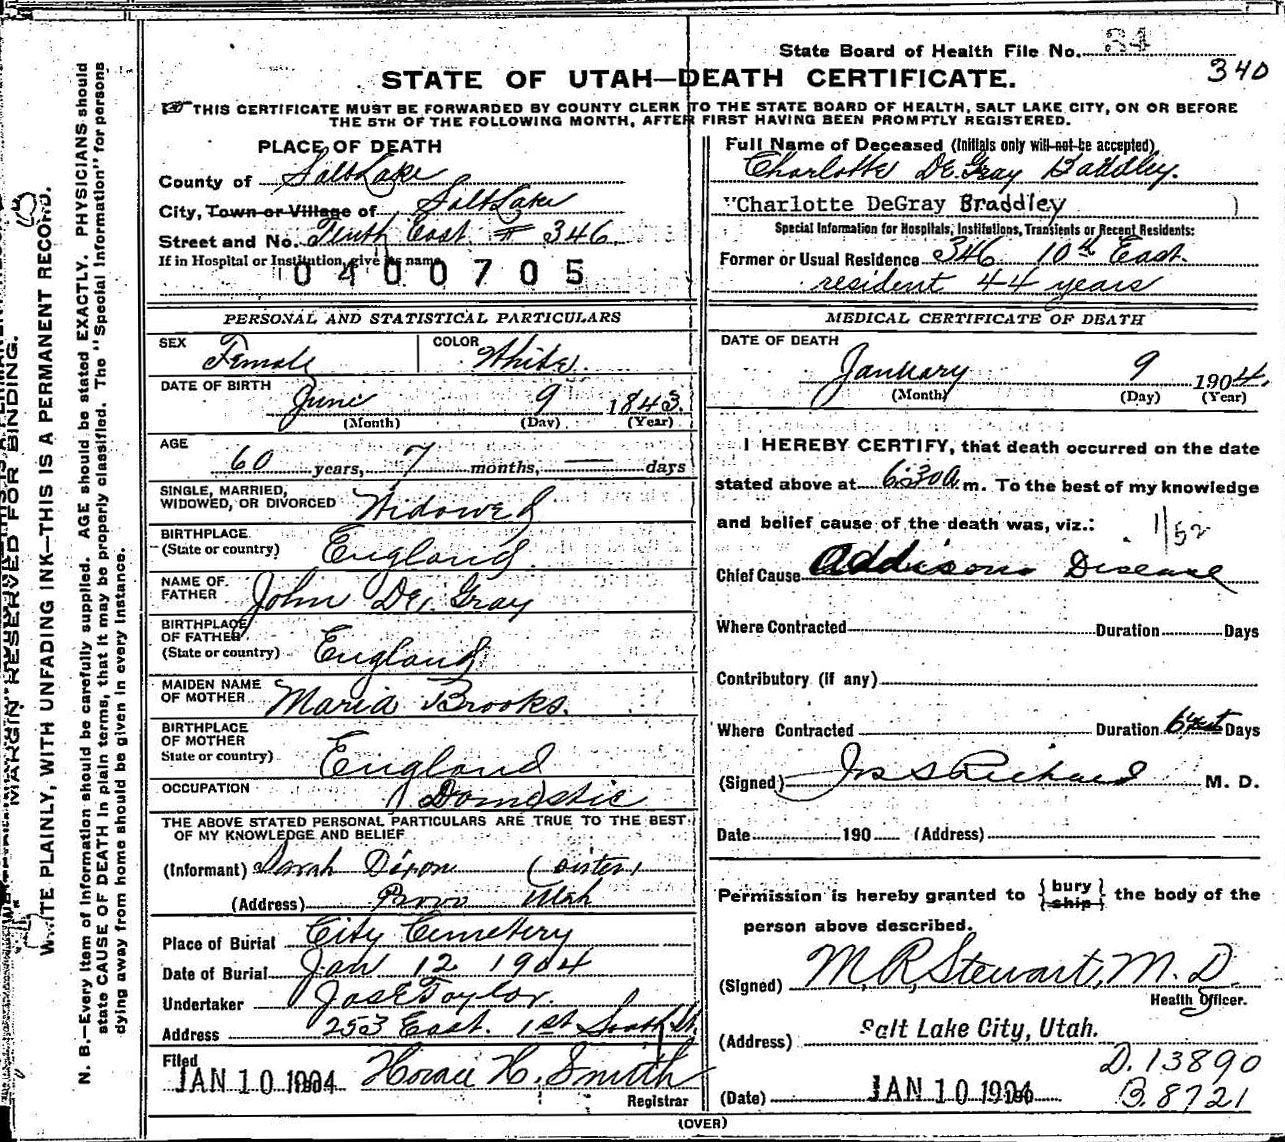 State Board of Health File No. 34
340
STATE OF UTAH—DEATH CERTIFICATE.
THIS CERTIFICATE MUST BE FORWARDED BY COUNTY CLERK TO THE STATE BOARD OF HEALTH, SALT LAKE CITY, ON OR BEFORE
THE 5TH OF THE FOLLOWING MONTH, AFTER FIRST HAVING BEEN PROMPTLY REGISTERED.
PLACE OF DEATH
County of Salt Lake
City, Town or Village of Salt Lake
Street and No. Tenth East # 346
If in Hospital or Institution, give its name
0400705
Full Name of Deceased (Initials only will not be accepted)
Charlotte De Gray Baddley.
"Charlotte DeGray Braddley )
Special Information for Hospitals, Institutions, Transients or Recent Residents:
Former or Usual Residence 346 10th East.
resident 44 years
PERSONAL AND STATISTICAL PARTICULARS
SEX Female COLOR White.
DATE OF BIRTH
June 9 1843.
(Month) (Day) (Year)
AGE
60 years, 7 months, — days
SINGLE, MARRIED,
WIDOWED, OR DIVORCED Widowed
BIRTHPLACE
(State or country) England
NAME OF
FATHER John De Gray
BIRTHPLACE
OF FATHER
(State or country) England
MAIDEN NAME
OF MOTHER Maria Brooks.
BIRTHPLACE
OF MOTHER
State or country) England
OCCUPATION Domestic
THE ABOVE STATED PERSONAL PARTICULARS ARE TRUE TO THE BEST
OF MY KNOWLEDGE AND BELIEF
(Informant) Sarah Dixon (sister)
(Address) Provo Utah
Place of Burial City Cemetery
Date of Burial Jan 12 1904
Undertaker Jos E Taylor.
Address 253 East. 1st South St
Filed
JAN 10 1904 Horace H. Smith
Registrar
MEDICAL CERTIFICATE OF DEATH
DATE OF DEATH
January 9 1904.
(Month) (Day) (Year)
I HEREBY CERTIFY, that death occurred on the date
stated above at 6:30 a. m. To the best of my knowledge
and belief cause of the death was, viz.:
1/52
Chief Cause Addisons Disease
Where Contracted Duration Days
Contributory (if any)
Where Contracted Duration Days
(Signed) Jos S Richards M. D.
Date 190 (Address)
Permission is hereby granted to { bury ship } the body of the
person above described.
(Signed) M. R. Stewart, M. D.
Health Officer.
(Address) Salt Lake City, Utah.
D. 13890
(Date) JAN 10 1904
B. 8721
(OVER)
MARGIN RESERVED FOR BINDING.
WRITE PLAINLY, WITH UNFADING INK—THIS IS A PERMANENT RECORD.
N. B.—Every item of information should be carefully supplied. AGE should be stated EXACTLY. PHYSICIANS should
state CAUSE OF DEATH in plain terms, that it may be properly classified. The "Special Information" for persons
dying away from home should be given in every instance.